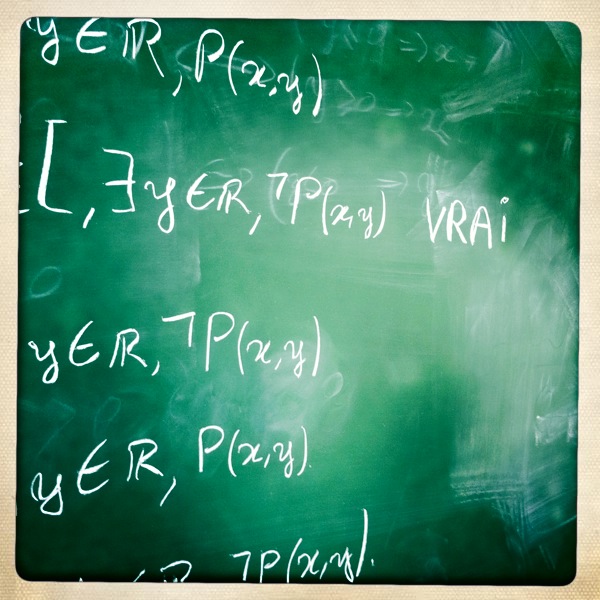 y ∈ ℝ, P(x,y)
[, ∃ y ∈ ℝ, ¬P(x,y) VRAi
y ∈ ℝ, ¬P(x,y)
y ∈ ℝ, P(x,y).
∈ ℝ, ¬P(x,y).